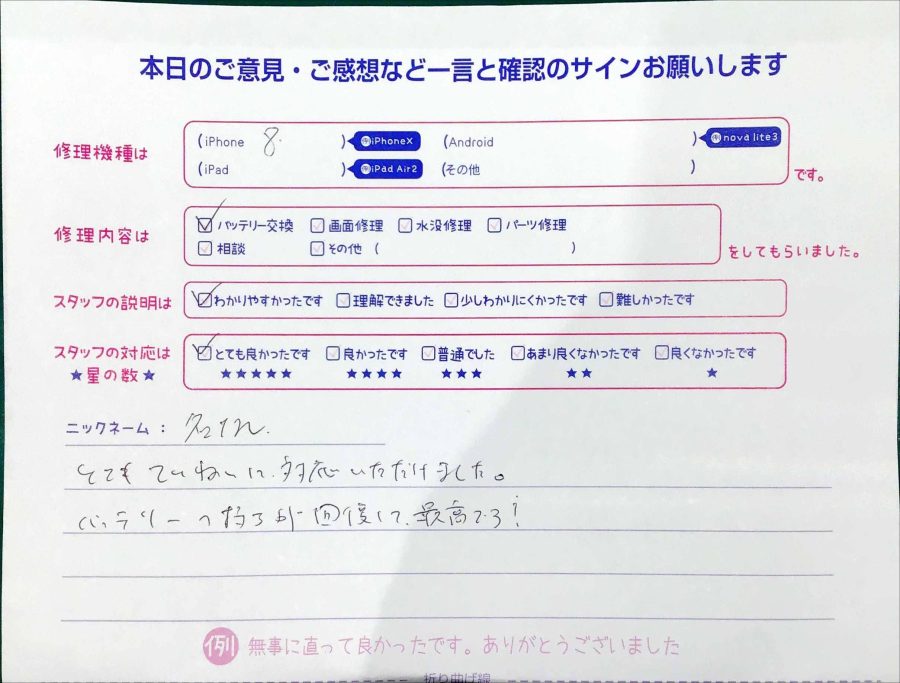 本日のご意見・ご感想など一言と確認のサインお願いします
修理機種は (iPhone 8. ) 例iPhoneX (Android ) 例nova lite3
(iPad ) 例iPad Air2 (その他 ) です。
修理内容は バッテリー交換 画面修理 水没修理 パーツ修理
相談 その他 ( ) をしてもらいました。
スタッフの説明は わかりやすかったです 理解できました 少しわかりにくかったです 難しかったです
スタッフの対応は とても良かったです 良かったです 普通でした あまり良くなかったです 良くなかったです
★星の数★ ★★★★★ ★★★★ ★★★ ★★ ★
ニックネーム：
とても ていねいに、対応いただけました。
バッテリーの持ちが回復して、最高です！
例 無事に直って良かったです。ありがとうございました
折り曲げ線